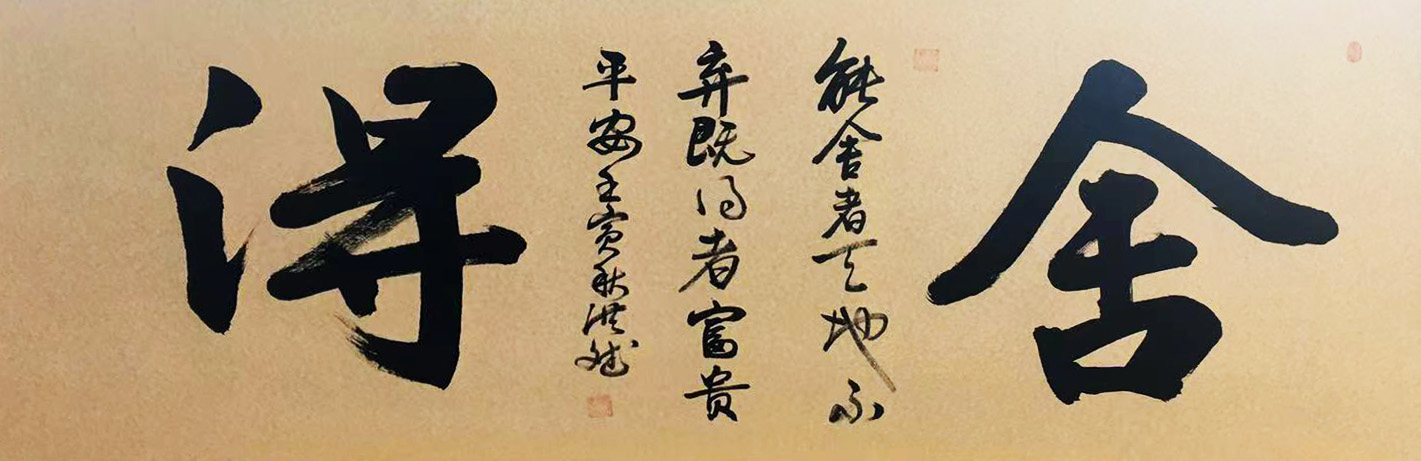 舍
能舍者天地不
弃既得者富贵
平安壬寅秋洪斌
得